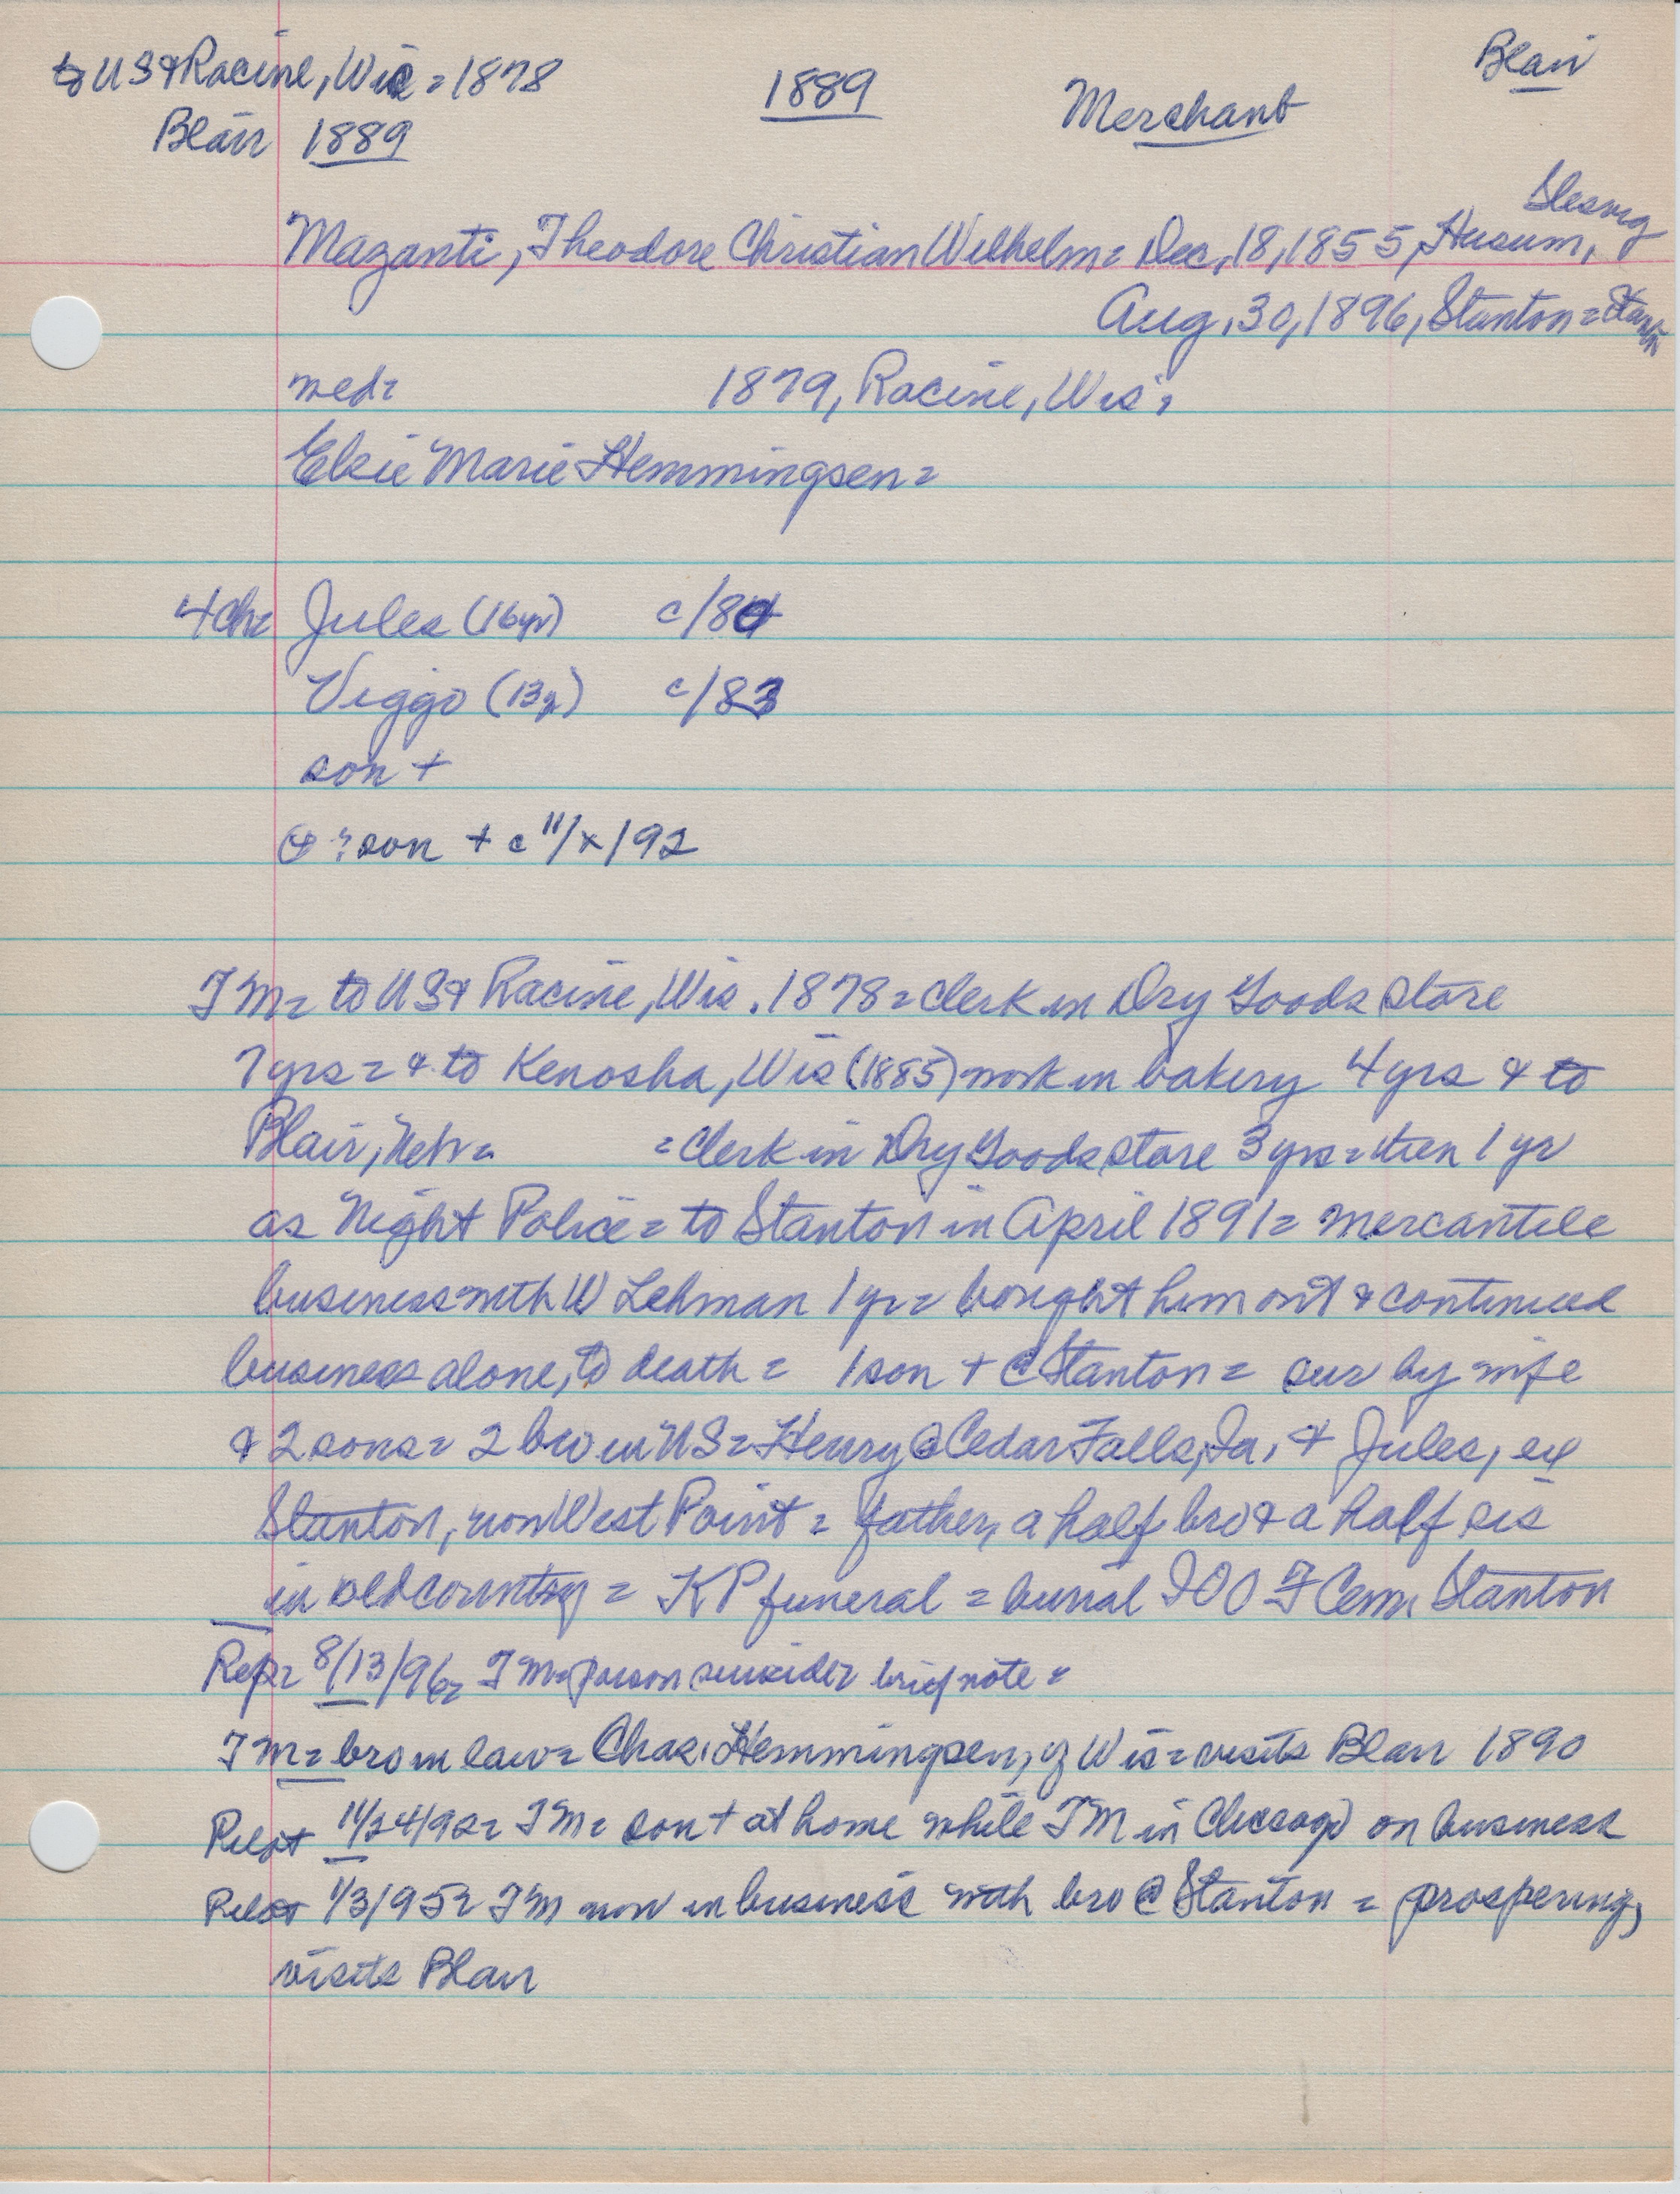 to US & Racine, Wis = 1878
1889
Merchant
Blair
Blair 1889
Slesvig
Mazanti, Theodore Christian Wilhelm = Dec, 18, 1855, Husum,
Aug, 30, 1896, Stanton = Stanton
med =
1879, Racine, Wis,
Elsie Marie Hemmingsen =
4 ch = Jules (16yr) c/80
Viggo (13y) c/83
son +
& ? son + c 11/x/92
TM = to US & Racine, Wis. 1878 = clerk in Dry Goods store
7 yrs = & to Kenosha, Wis (1885) work in bakery 4 yrs & to
Blair, Neb = = clerk in Dry Goods store 3 yrs = then 1 yr
as Night Police = to Stanton in April 1891 = mercantile
business with W Lehman 1 yr = bought him out & continued
business alone, to death = 1 son + @ Stanton = sur by wife
& 2 sons = 2 bro in US = Henry @ Cedar Falls, Ia, & Jules, ex
Stanton, now West Point = father, a half bro & a half sis
in old country = KP funeral = burial IOOF Cem. Stanton
Rep = 8/13/96 = TM = poison suicide = brief note =
TM = bro in law = Chas. Hemmingsen, of Wis = visits Blair 1890
Pilot 11/24/92 = TM = son + at home while TM in Chicago on business
Pilot 1/3/95 = TM now in business with bro @ Stanton = prospering,
visits Blair